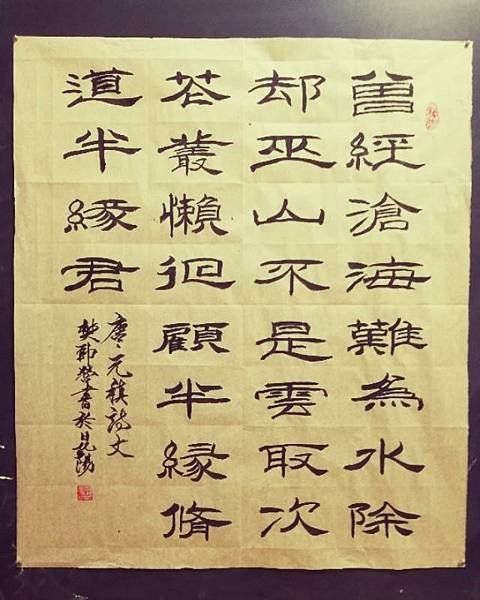 曾經滄海難為水除
却巫山不是雲取次
花叢懶徊顧半緣脩
道半緣君
唐元稹詩文
樊 書於昆陽